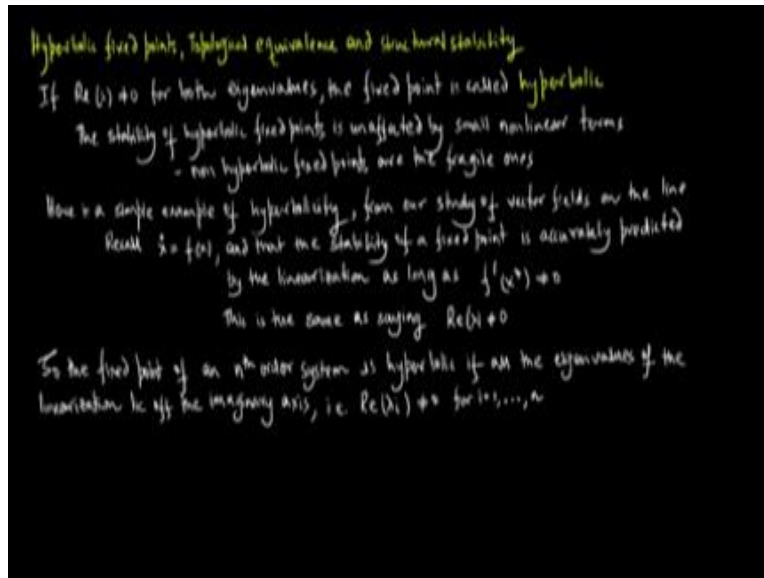 Hyperbolic fixed points, Topological equivalence and structural stability
If Re(λ) ≠ 0 for both eigenvalues, the fixed point is called hyperbolic
The stability of hyperbolic fixed points is unaffected by small nonlinear terms
- non hyperbolic fixed points are the fragile ones
Here is a simple example of hyperbolicity, from our study of vector fields on the line
Recall ẋ = f(x), and that the stability of a fixed point is accurately predicted
by the linearization as long as f'(x*) ≠ 0
This is the same as saying Re(λ) ≠ 0
So the fixed point of an nth order system is hyperbolic if all the eigenvalues of the
linearization lie off the imaginary axis, i.e Re(λi) ≠ 0 for i=1,...,n